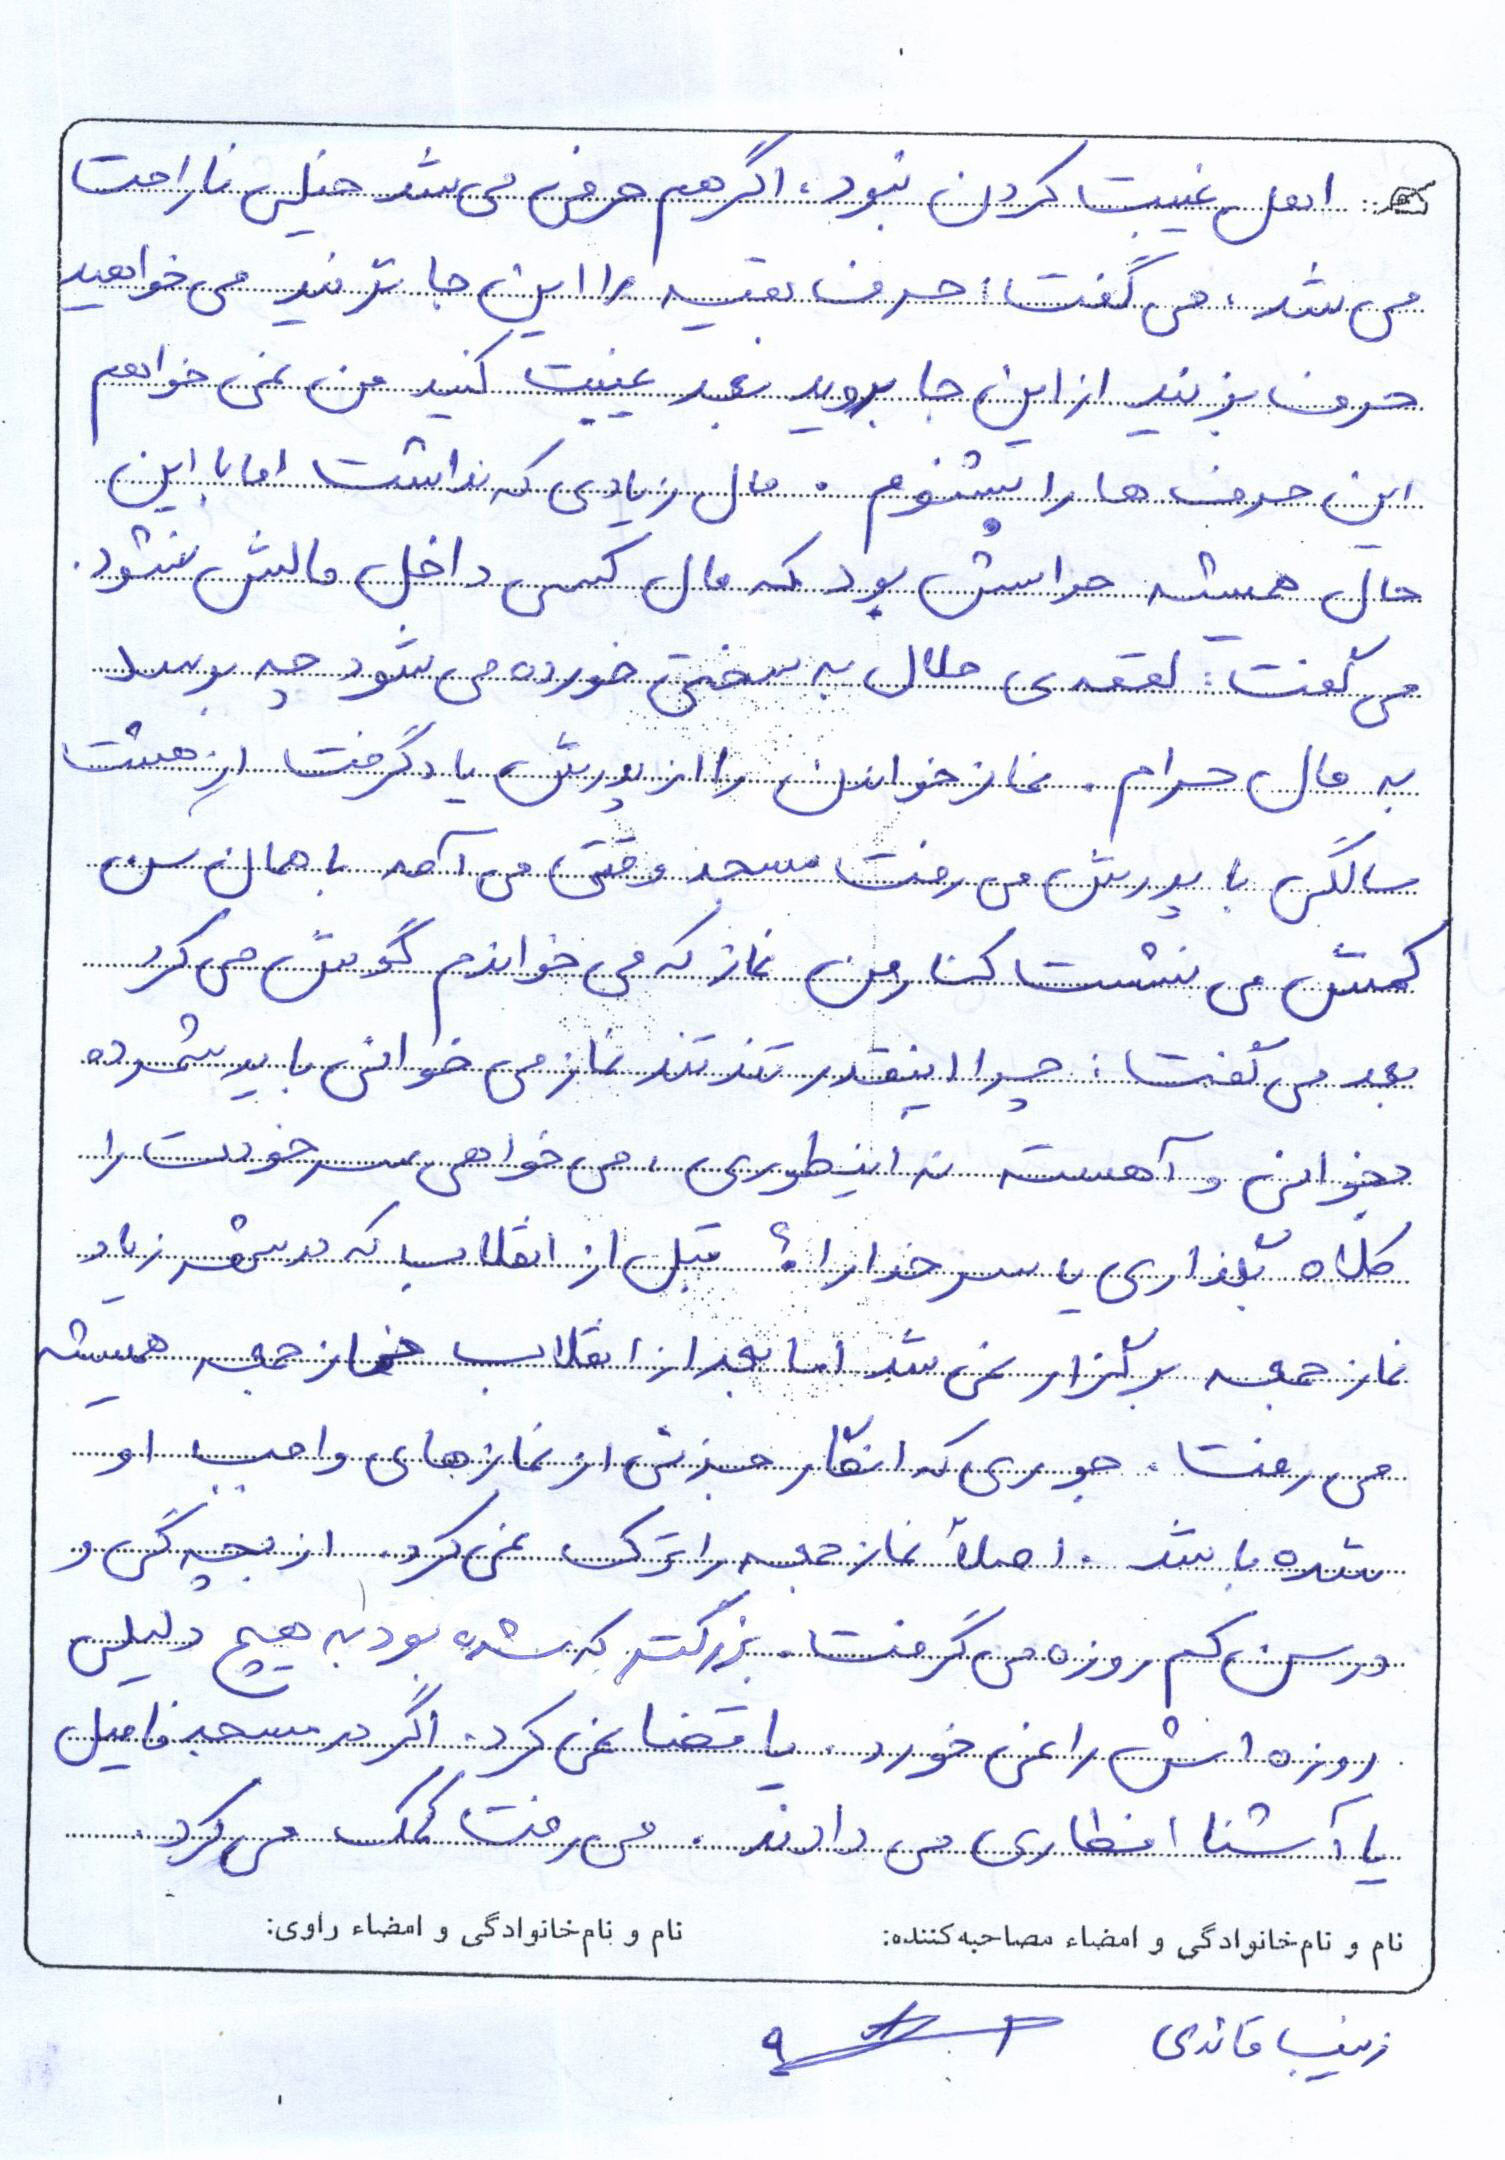 اهل غیبت کردن نبود، اگر هم حرفی می‌شد خیلی ناراحت
می‌شد، می‌گفت: حرف بقیه را این جا نزنید می‌خواهید
حرف بزنید از این جا بروید بعد غیبت کنید من نمی‌خواهم
این حرف ها را بشنوم. مال زیادی که نداشت اما با این
حال همیشه حواسش بود که مال کسی داخل مالش نشود.
می‌گفت: لقمه‌ی حلال به سختی خورده می‌شود چه برسد
به مال حرام. نماز خواندن را از پدرش یاد گرفت از هشت
سالگی با پدرش می‌رفت مسجد وقتی می‌آمد با همان سن
کمش می‌نشست کنار من نماز که می‌خواندم گوش می‌کرد
بعد می‌گفت: چرا اینقدر تند تند نماز می‌خوانی باید شمرده
بخوانی و آهسته نه اینطوری، می‌خواهی سر خودت را
کلاه بگذاری یا سر خدا را؟ قبل از انقلاب که در شهر زیاد
نماز جمعه برگزار نمی‌شد اما بعد از انقلاب نماز جمعه همیشه
می‌رفت. جوری که انگار جزئی از نمازهای واجب او
شده باشد. اصلاً نماز جمعه را ترک نمی‌کرد. از بچه گی و
در سن کم روزه می‌گرفت. بزرگتر که شده بود به هیچ دلیلی
روزه اش را نمی‌خورد. یا قضا نمی‌کرد. اگر در مسجد فامیل
یا آشنا افطاری می‌دادند. می‌رفت کمک می‌کرد.
نام و نام‌خانوادگی و امضاء مصاحبه‌کننده: نام و نام‌خانوادگی و امضاء راوی:
زینب قائدی